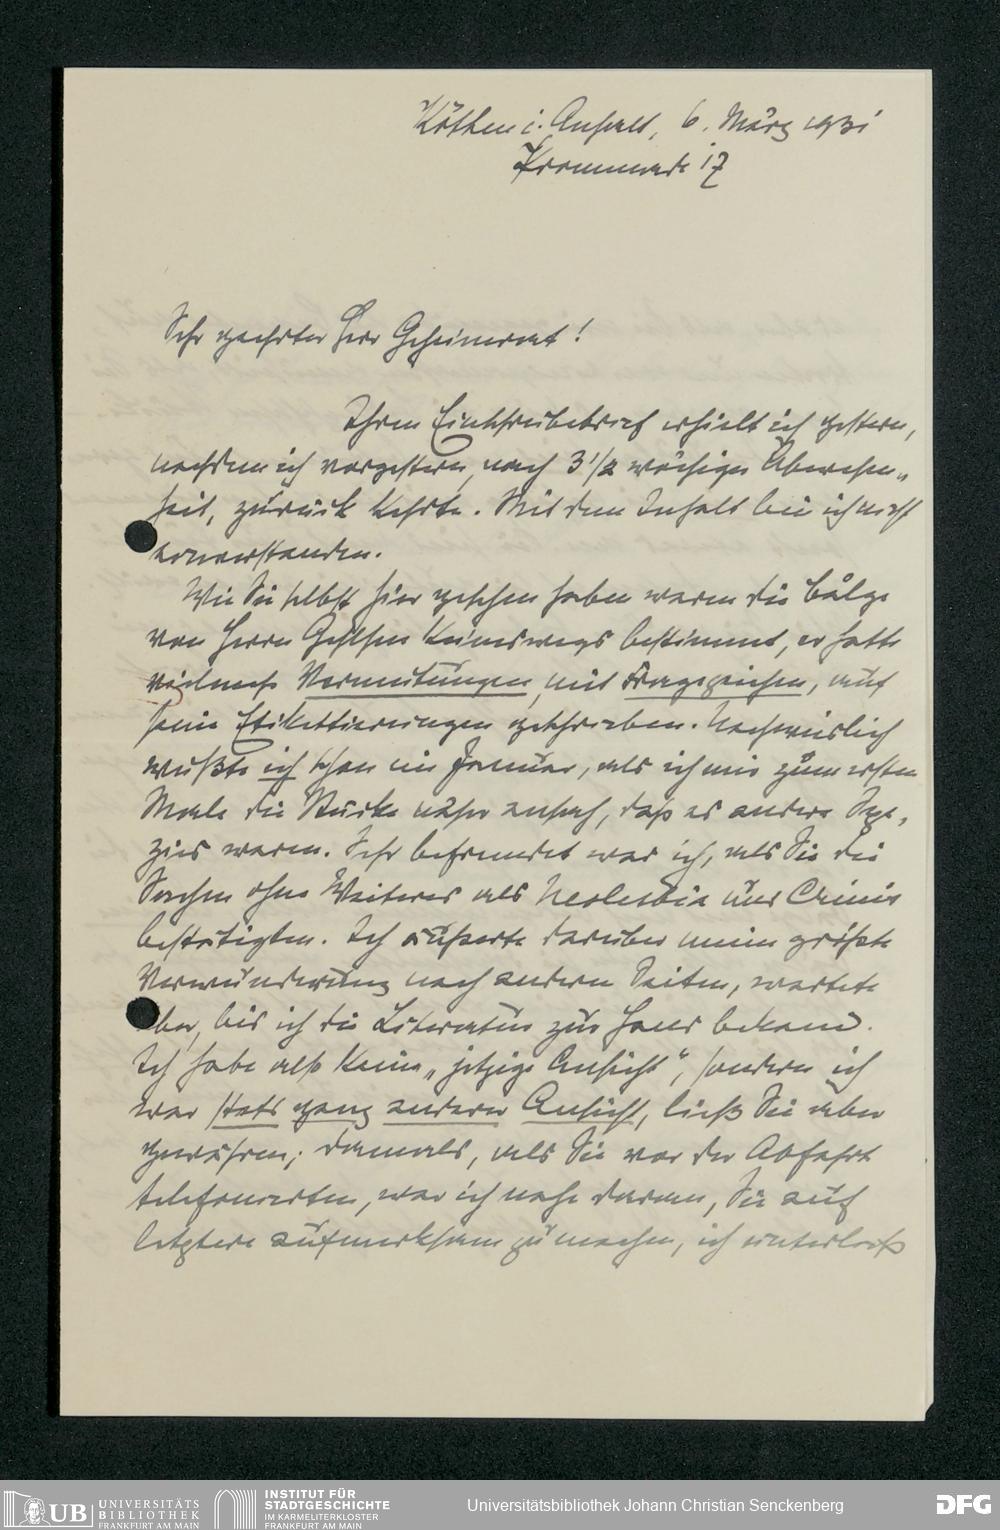 Köthen i. Anhalt, 6. März 1931
Promenade 17
Sehr geehrter Herr Geheimerat!
Ihren Einschreibebrief erhielt ich gestern,
nachdem ich vorgestern, nach 3 1/2 wöchiger Abwesen„
heit, zurück kehrte. Mit dem Inhalt bin ich nicht
einverstanden.
Wie Sie selbst hier gesehen haben waren die Bälge
von Herrn keineswegs bestimmt, er hatte
vielmehr Vermutungen, mit Fragezeichen, auf
seine Etikettierungen geschrieben. Nachweislich
wußte ich schon im Januar, als ich mir zum ersten
Male die Stücke näher ansah, daß es andere Spe„
zies waren. Sehr befremdet war ich, als Sie die
Sachen ohne Weiteres als Neolesbia und
bestätigten. Ich äußerte darüber meine größte
Verwunderung nach andern Seiten, wartete
aber, bis ich die Literatur zur Hand bekam.
Ich habe also keine „jetzige Ansicht“, sondern ich
war stets ganz anderer Ansicht, ließ Sie aber
gewähren; damals, als Sie vor der Abfahrt
telefonierten, war ich nahe daran, Sie auf
letztere aufmerksam zu machen, ich unterließ
UB UNIVERSITÄTS
BIBLIOTHEK
FRANKFURT AM MAIN
INSTITUT FÜR
STADTGESCHICHTE
IM KARMELITERKLOSTER
FRANKFURT AM MAIN
Universitätsbibliothek Johann Christian Senckenberg
DFG